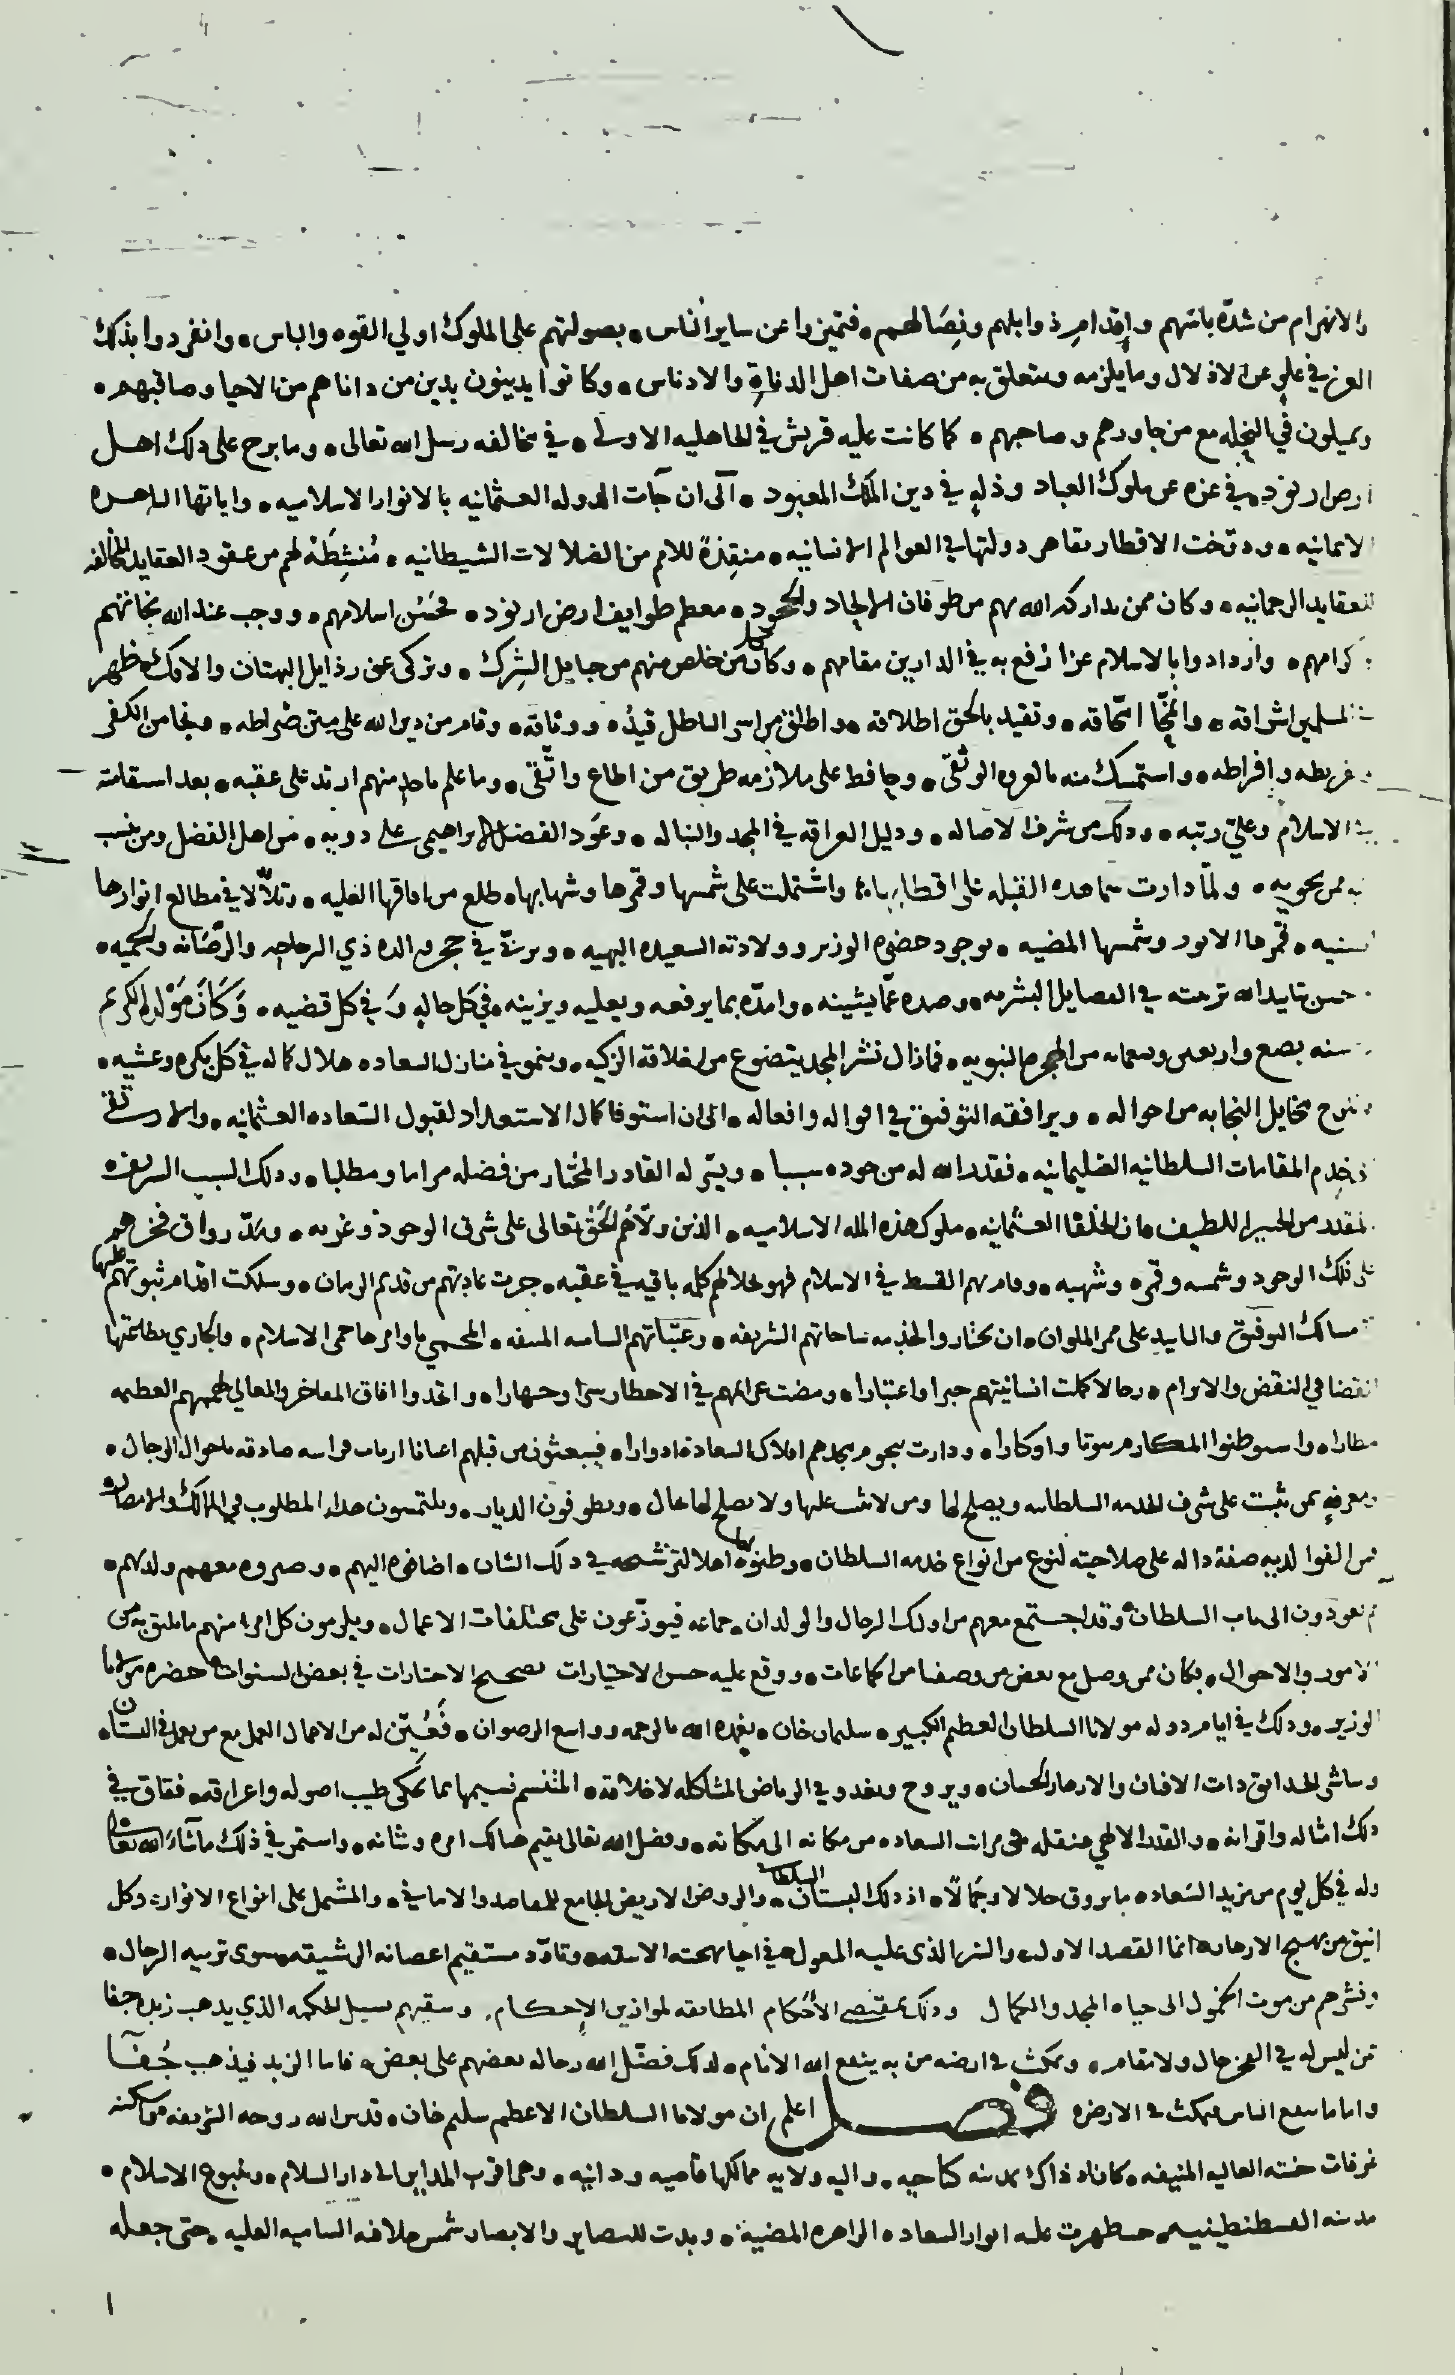 والانهزام من شدة باسهم واقدام ذوابلهم ونصالهم فتميزوا عن ساير الناس بصولتهم على الملوك اولي القوه والباس وانفردوا بذلك
العز في علو عن الاذلال وما يلزمه ويتعلق به من صفات اهل الدناة والادناس وكانوا يدينون بدين من داناهم من الاحيا وصاقبهم
ويميلون في النحله مع من جاورهم وصاحبهم كما كانت عليه قريش في الجاهليه الاولى في مخالفه رسل الله تعالى وما برح على ذلك اهل
ارض ارنود في عزه عن ملوك العباد وذله في دين الملك المعبود الى ان جآت الدوله العثمانيه بالانوار الاسلاميه واياتها الباهره
الايمانيه ودوخت الاقطار بقاهر دولتها في العوالم الانسانيه منقذة للامم من الضلالات الشيطانيه منشطة لهم من عقود العقايد المخالفه
للعقايد الرحمانيه وكان ممن تداركه الله بهم من طوفان الالحاد والجحود معظم طوايف ارض ارنود فحسن اسلامهم ووجب عند الله نجاتهم
كرامهم وازدادوا بالاسلام عزا رفع به في الدارين مقامهم وكان كل من خلص منهم من حبايل الشرك وتزكى عن رذايل البهتان والافك ظهر
المسلمين اشراقه وتقيد بالحق اطلاقه واطلق من اسر الباطل قيده ووثاقه وقام من دين الله على متن صراطه ونجا من الكفر
وافراطه واستمسك منه بالعروه الوثقى وحافظ على ملازمه طريق من اطاع واتقى وما علم ماحد منهم ارتد على عقبه بعد استقامته
الاسلام وعلي رتبه وذلك من شرف الاصاله ودليل العراقه في المجد والنباله وعود الفضل الابراهيمي على ذويه من اهل الفضل ومن ينسب
به ممن يحويه ولما دارت سما هذه القبيله على اقطابها واشتملت على شمسها وقمرها وشهابها طلع من افاقها العليه وتلألا في مطالع انوارها
السنيه قمرها الانور وشمسها المضيه بوجود حضره الوزير وولادته السعيده البهيه وتربى في حجر والده ذي الرجاحه والرصانه والحميه
حسن تاييد الله تربيته في الفضايل البشريه وصده عما يشينه وامده بما يرفعه ويعليه ويزينه في كل حاله وفي كل قضيه وكان مولده الكريم
سنه بضع واربعين وتسعمايه من الهجره النبويه فما زال نشر المجد يتضوع من اخلاقه الزكيه وينمو في منازل السعاده هلال كماله في كل بكره وعشيه
مخايل النجابه من احواله ويرافقه التوفيق في اقواله وافعاله الى ان استوفا كمال الاستعداد لقبول السعاده العثمانيه والارتقى
في خدم المقامات السلطانيه السليمانيه فقدر الله له من جوده سببا ويسر له القادر المختار من فضله مراما ومطلبا وذلك السبب الشريف
المقدر من الخبير اللطيف ان الخلفا العثمانيه ملوك هذه المله الاسلاميه الذين ولاهم الحق تعالى على شرق الوجود وغربه ومد رواق فخرهم
على فلك الوجود وشمسه وقمره وشهبه وقام بهم القسط في الاسلام فهو بجلالهم كلمه باقيه في عقبه جرت عادتهم من قديم الزمان وسلكت اقدام ثبوتهم عليها
مسالك التوفيق والتاييد على ممر الملوان ان يختاروا لخدمه ساحاتهم الشريفه وعتباتهم الساميه المنيفه المحمي باوامرها حمى الاسلام والجاري بطاعتها
القضا في النقض والابرام رجالا كملت انسانيتهم خبرا واعتبارا ومضت عزايمهم في الاخطار سرا وجهارا واتخذوا افاق المفاخر والمعالي لهممهم العظيمه
مطارا واستوطنوا المكارم بيوتا واوكارا ودارت بنجوم مجدهم افلاك السعادة ادوارا فيبعثون من قبلهم اعيانا ارباب فراسه صادقه باحوال الرجال
ومعرفه بمن يثبت على شرف الخدمه السلطانيه ويصلح لها ومن لا يثبت عليها ولا يصلح لها بحال ويطوفون الديار ويلتمسون هذا المطلوب في الممالك والامصار
فمن الفوا لديه صفة داله على صلاحيته لنوع من انواع خدمه السلطان وظنوه اهلا لترشيحه في ذلك الشان اضافوه اليهم وصيروه معهم ولديهم
ثم يعودون الى باب السلطان وقد اجتمع معهم من اولئك الرجال والولدان جماعه فيوزعون على مختلفات الاعمال ويلزمون كل امرء منهم ما يليق به من
الامور والاحوال فكان ممن وصل مع بعض من وصفنا من الجماعات ووقع عليه حسن الاختيارات بصحيح الاختبارات في بعض السنوات حضره مولانا
الوزير وذلك في ايام دوله مولانا السلطان العظيم الكبير سليمان خان تغمده الله بالرحمه وواسع الرضوان فعين له من الاعمال العمل مع من يعمل في البستان
وساشي الحدايق ذات الافنان والازهار الحسان ويروح ويغدو في الرياض المشاكله لاخلاقه المتنسم نسيمها بما يحكي طيب اصوله واعراقه ففاق في
ذلك امثاله واقرانه والقدر الالهي ينقله في مراتب السعاده من مكانه الى مكانه وفضل الله تعالى يقيم هنالك امره وشانه واستمر في ذلك ما شاء الله تعالى
وله في كل يوم من مزيد السعاده ما يروق جلالا وجمالا اذ ذلك البستان السلطاني والروض الاريض الجامع للمقاصد والاماني والمشتمل على انواع الانوار وكل
انيق من بهيج الازهار انما القصد الاول والسر الذي عليه المعول في احيا بهجته الانيقه وتاود مستقيم اغصانه الرشيقه سوى تربيه الرجال
ونشرهم من موت الخمول الى حياه المجد والكمال وذلك بمقتضى الأحكام المطابقه لموازين الإحكام وسقيهم سيل الحكمه الذي يذهب زبده جفا
من ليس له في الفخر حال ولا مقام ويمكث في ارضه من به ينفع الله الانام لذلك فضل الله رجاله بعضهم على بعض فاما الزبد فيذهب جفآ
واما ما ينفع الناس فيمكث في الارض فصل اعلم ان مولانا السلطان الاعظم سليم خان قدس الله روحه الشريفه واسكنه
غرفات جنته العاليه المنيفه كان اذ ذاك بمدينه كتاهيه واليه ولايه ممالكها قاصيه ودانيه وهي اقرب المداين الى دار السلام وينبوع الاسلام
مدينه القسطنطينيه فظهرت عليه انوار السعاده الزاهره المضيه وبدت للبصاير والابصار شمس خلافه الساميه العليه حتى جعله